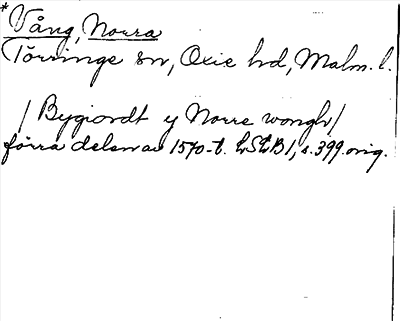 * Vång, Norra
Törringe sn, Oxie hd, Malm. l.
/ Bygiordt y Norre wongh /
förra delen av 1570-t. LSEB 1, s. 399. orig.